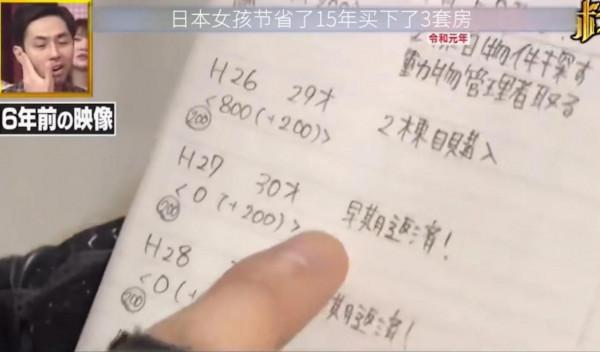 日本女孩节省了15年买下了3套房
令和元年
6年前の映像
2棟目物件探す
動物管理者取る
H26 29才
<800(+200)> 2棟目購入
200
H27 30才
<0(+200)> 早期返済！
200
H28
<0(+
200
期返済！